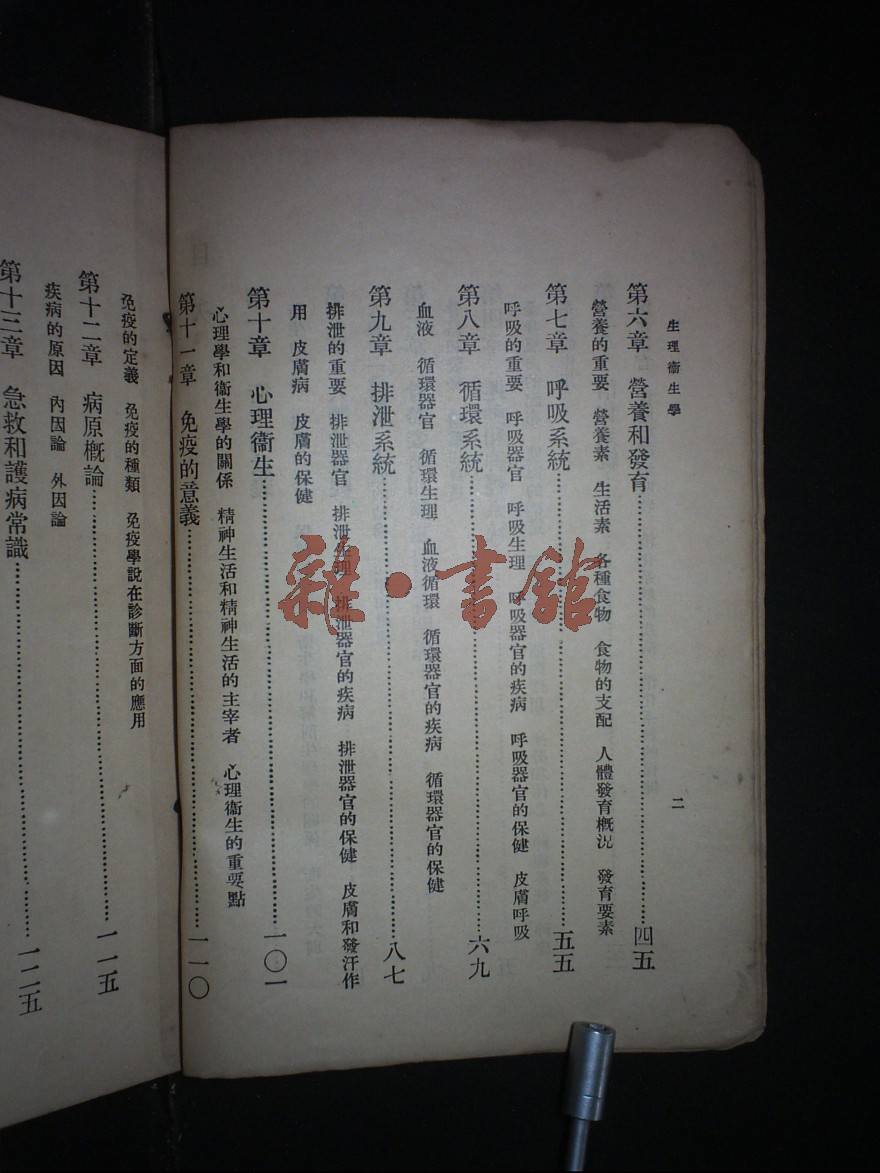 生理衞生學
二
第六章　營養和發育……四五
營養的重要　營養素　生活素　各種食物　食物的支配　人體發育概況　發育要素
第七章　呼吸系統……五五
呼吸的重要　呼吸器官　呼吸生理　呼吸器官的疾病　呼吸器官的保健　皮膚呼吸
第八章　循環系統……六九
血液　循環器官　循環生理　血液循環　循環器官的疾病　循環器官的保健
第九章　排泄系統……八七
排泄的重要　排泄器官　排泄生理　排泄器官的疾病　排泄器官的保健　皮膚和發汗作
用　皮膚病　皮膚的保健
第十章　心理衞生……一〇一
心理學和衞生學的關係　精神生活和精神生活的主宰者　心理衞生的重要點
第十一章　免疫的意義……一一〇
免疫的定義　免疫的種類　免疫學說在診斷方面的應用
第十二章　病原概論……一一五
疾病的原因　內因論　外因論
第十三章　急救和護病常識……一二五
雜·書館